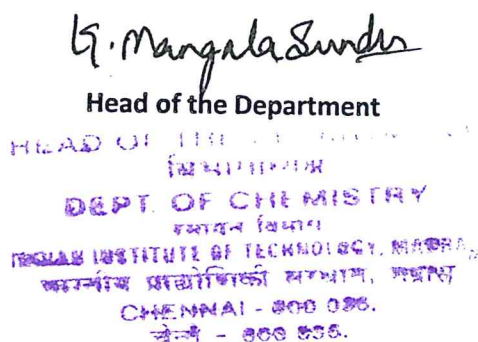 G. Mangala Sunder
Head of the Department
HEAD OF THE
DEPT. OF CHEMISTRY
रसायन विभाग
INDIAN INSTITUTE OF TECHNOLOGY, MADRAS
भारतीय प्रौद्योगिकी संस्थान, मद्रास
CHENNAI - 600 036.
चेन्नै - 600 036.